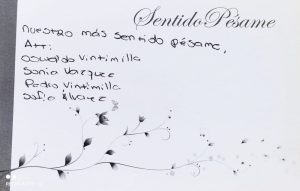 Sentido Pésame
Nuestro más sentido pésame,
Att:
Oswaldo Vintimilla
Sonia Vazquez
Pedro Vintimilla
Sofia Álvarez